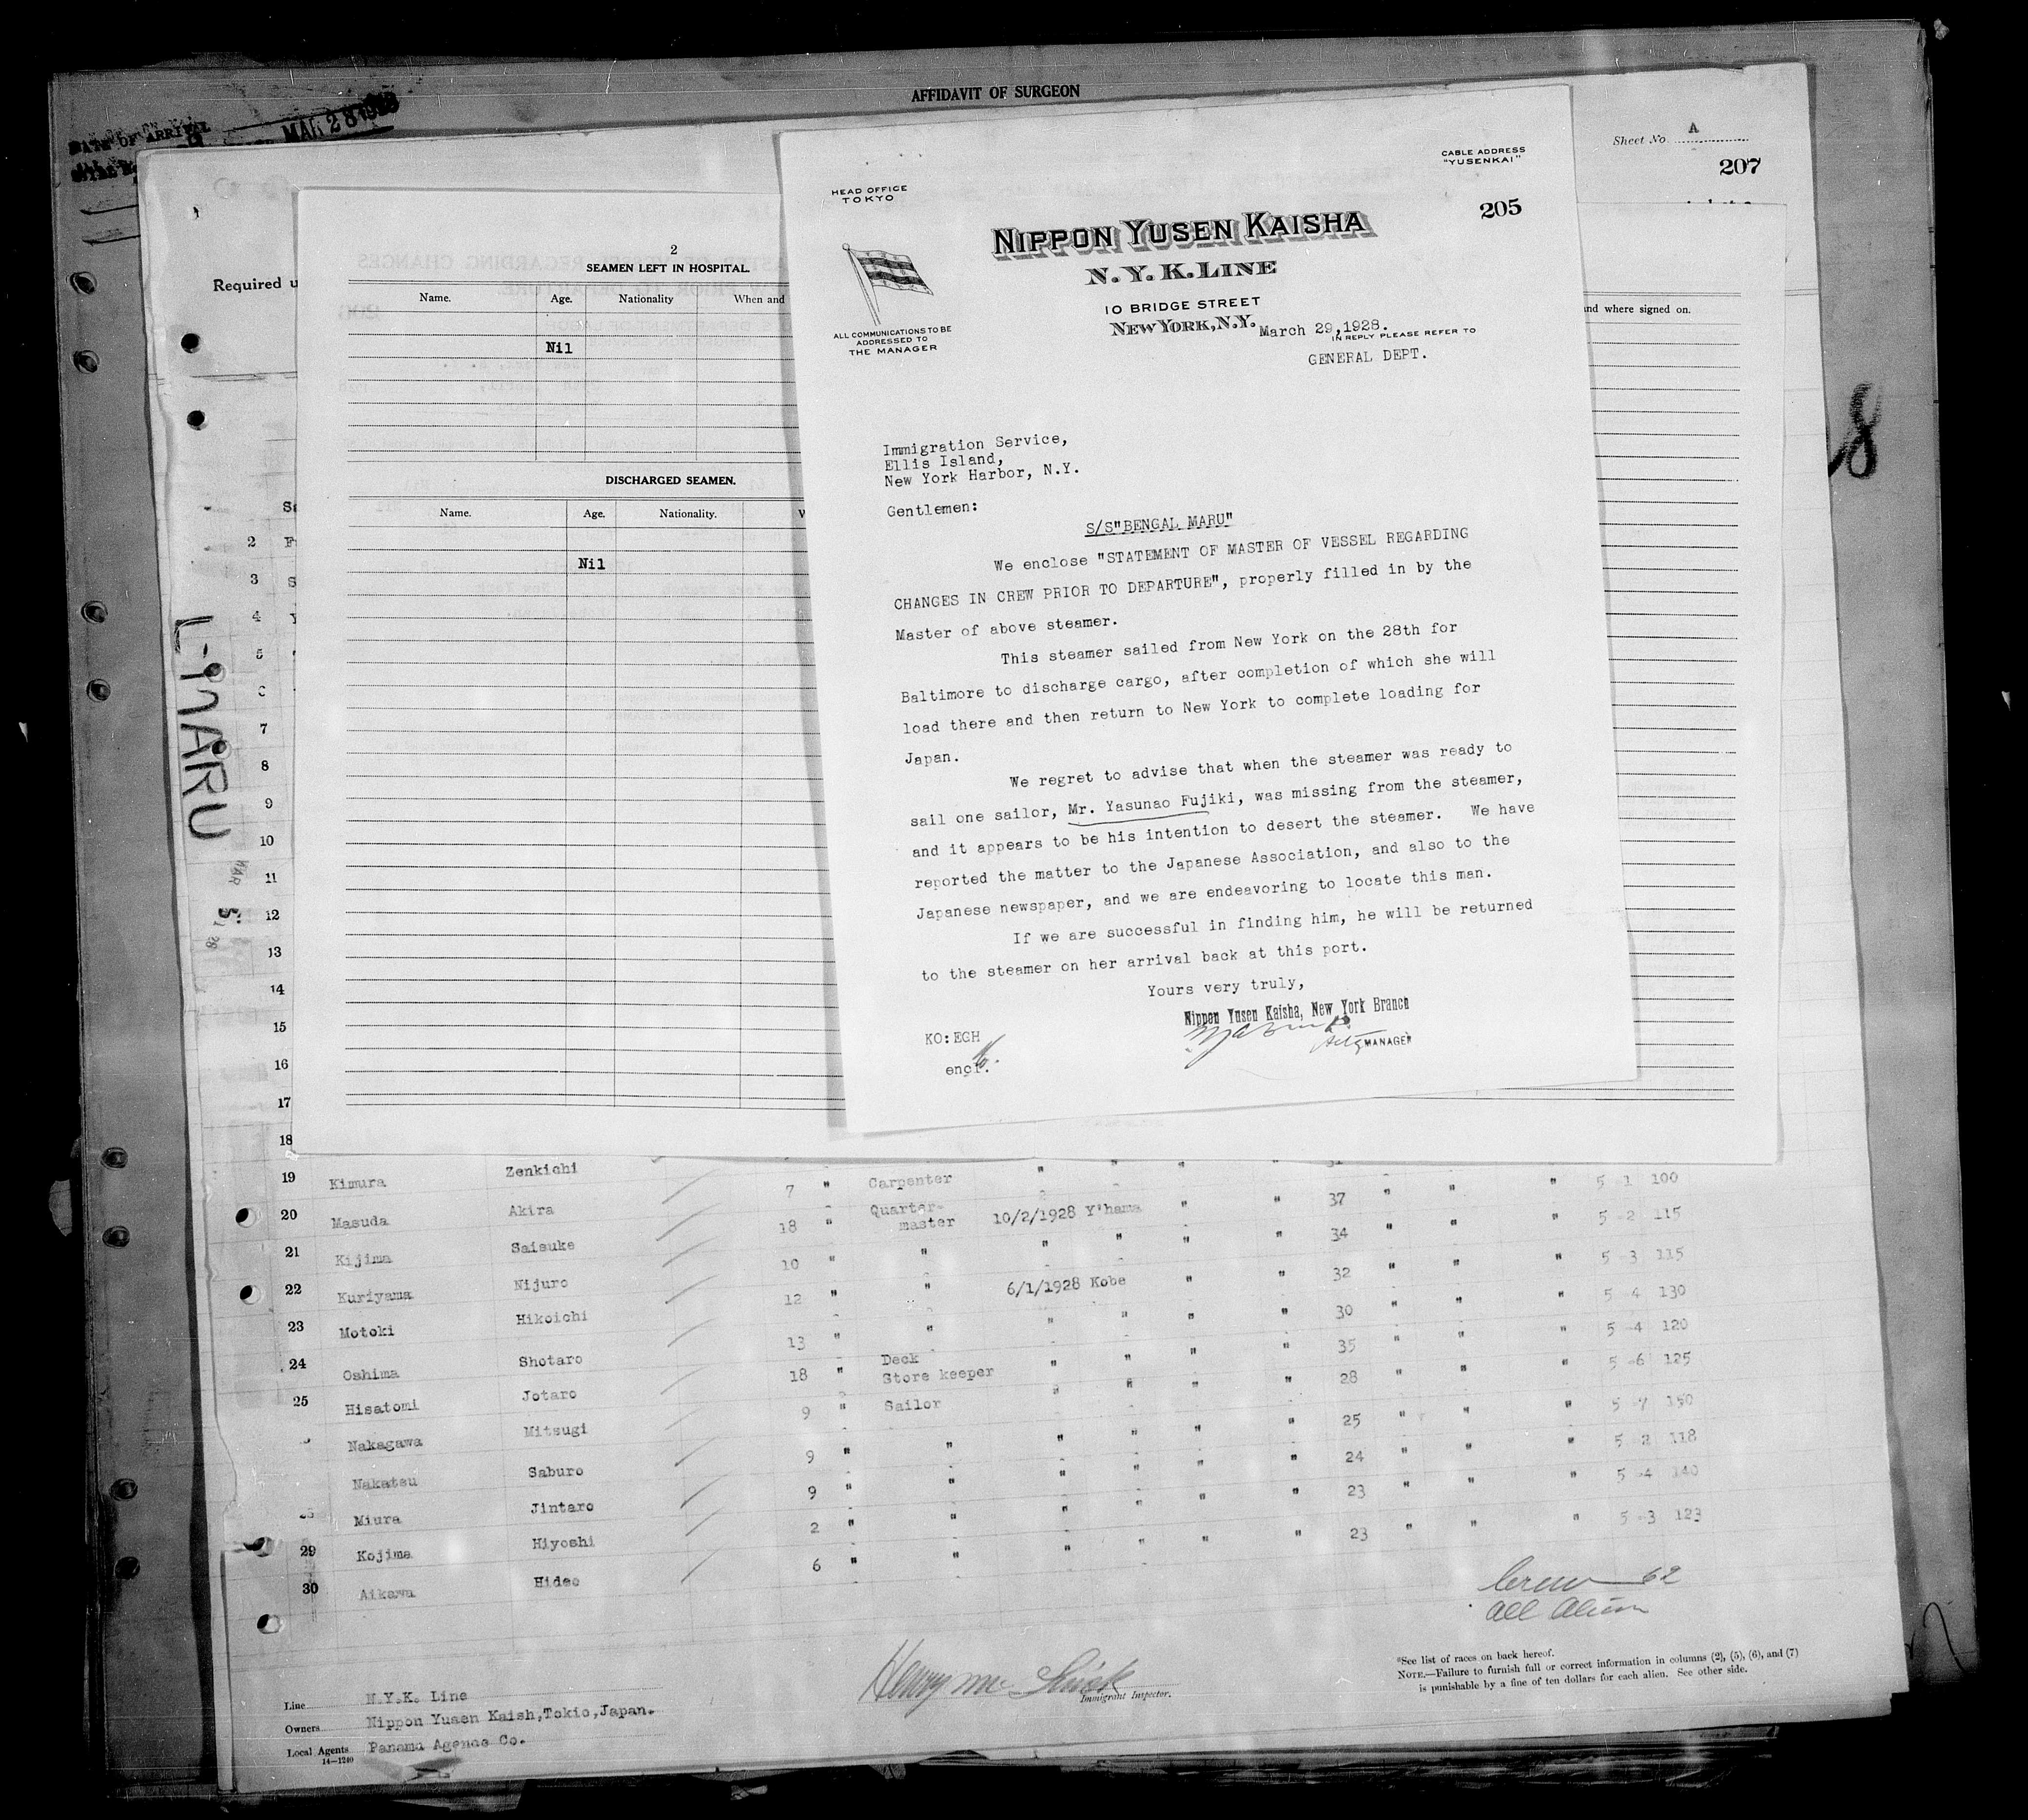 AFFIDAVIT OF SURGEON
DATE OF ARRIVAL
MAR 28 1928
Sheet No. A
207
Required u
2
SEAMEN LEFT IN HOSPITAL.
Name. Age. Nationality When and
Nil
DISCHARGED SEAMEN.
Name. Age. Nationality. W
Nil
and where signed on.
HEAD OFFICE
TOKYO
CABLE ADDRESS
"YUSENKAI"
205
NIPPON YUSEN KAISHA
N. Y. K. LINE
10 BRIDGE STREET
NEW YORK, N.Y.
ALL COMMUNICATIONS TO BE
ADDRESSED TO
THE MANAGER
March 29, 1928.
IN REPLY PLEASE REFER TO
GENERAL DEPT.
Immigration Service,
Ellis Island,
New York Harbor, N.Y.
Gentlemen:
S/S"BENGAL MARU"
We enclose "STATEMENT OF MASTER OF VESSEL REGARDING
CHANGES IN CREW PRIOR TO DEPARTURE", properly filled in by the
Master of above steamer.
This steamer sailed from New York on the 28th for
Baltimore to discharge cargo, after completion of which she will
load there and then return to New York to complete loading for
Japan.
We regret to advise that when the steamer was ready to
sail one sailor, Mr. Yasunao Fujiki, was missing from the steamer,
and it appears to be his intention to desert the steamer. We have
reported the matter to the Japanese Association, and also to the
Japanese newspaper, and we are endeavoring to locate this man.
If we are successful in finding him, he will be returned
to the steamer on her arrival back at this port.
Yours very truly,
Nippon Yusen Kaisha, New York Branch
MANAGER
KO:EGH
encl.
L-MARU
2
3
4
5
6
7
8
9
10
11
12
13
14
15
16
17
18
19 Kimura Zenkichi 7 " Carpenter " " " " 37 " " " 5 1 100
20 Masuda Akira 18 " Quarter-master 10/2/1928 Y'hama " " 34 " " " 5 2 115
21 Kijima Saisuke 10 " " " " " " 32 " " " 5 3 115
22 Kuriyama Nijuro 12 " " 6/1/1928 Kobe " " 30 " " " 5 4 130
23 Motoki Hikoichi 13 " " " " " " 35 " " " 5 4 120
24 Oshima Shotaro 18 " Deck Store keeper " " " " 28 " " " 5 6 125
25 Hisatomi Jotaro 9 " Sailor " " " " 25 " " " 5 7 150
Nakagawa Mitsugi 9 " " " " " " 24 " " " 5 2 118
Nakatsu Saburo 9 " " " " " " 23 " " " 5 4 140
Miura Jintaro 2 " " " " " " 23 " " " 5 3 123
29 Kojima Hiyoshi 6 " "
30 Aikawa Hideo
Crew 62
All Alien
Henry
Immigrant Inspector.
*See list of races on back hereof.
NOTE.—Failure to furnish full or correct information in columns (2), (5), (6), and (7)
is punishable by a fine of ten dollars for each alien. See other side.
Line N.Y.K. Line
Owners Nippon Yusen Kaish, Tokio, Japan.
Local Agents Panama Agence Co.
14—1240